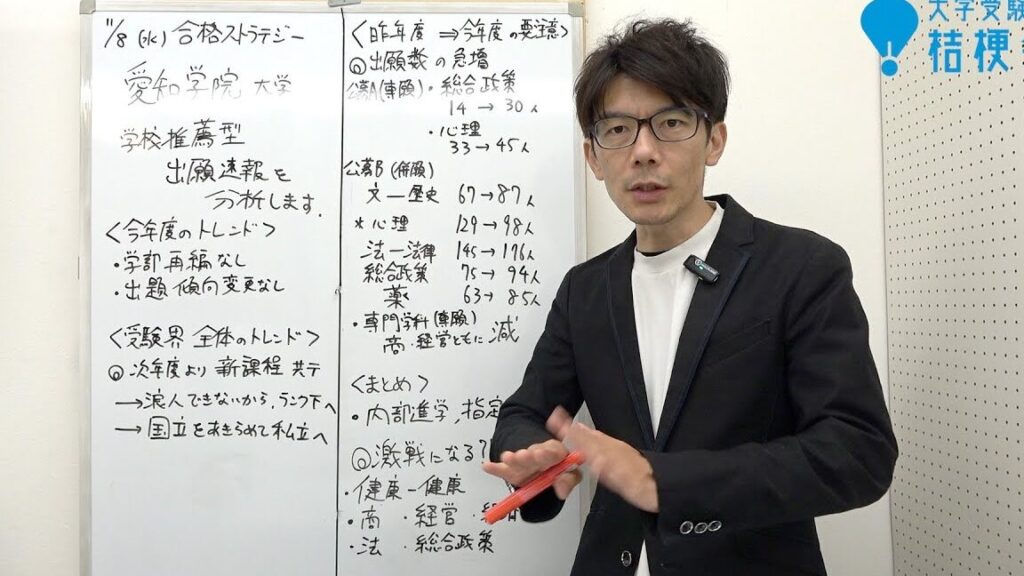 11/8 (水) 合格ストラテジー
愛知学院 大学
学校推薦型
出願速報を
分析します.
<今年度のトレンド>
・学部再編なし
・出題傾向変更なし
<受験界 全体のトレンド>
◎次年度より 新課程 共テ
→浪人できないから,ランク下へ
→国立をあきらめて私立へ
<昨年度 ⇒今年度の要注意>
◎出願数の急増
公募A(専願)・総合政策
14 → 30人
・心理
33→45人
公募B (併願)
文―歴史 67→87人
* 心理 129→98人
法―法律 145→176人
総合政策 75→94人
薬 63→85人
・専門学科(専願)
商・経営ともに減
<まとめ>
・内部進学,指定
◎激戦になる?
・健康―健康
・商 ・経営 ・
・法 ・総合政策
大学受験
桔梗